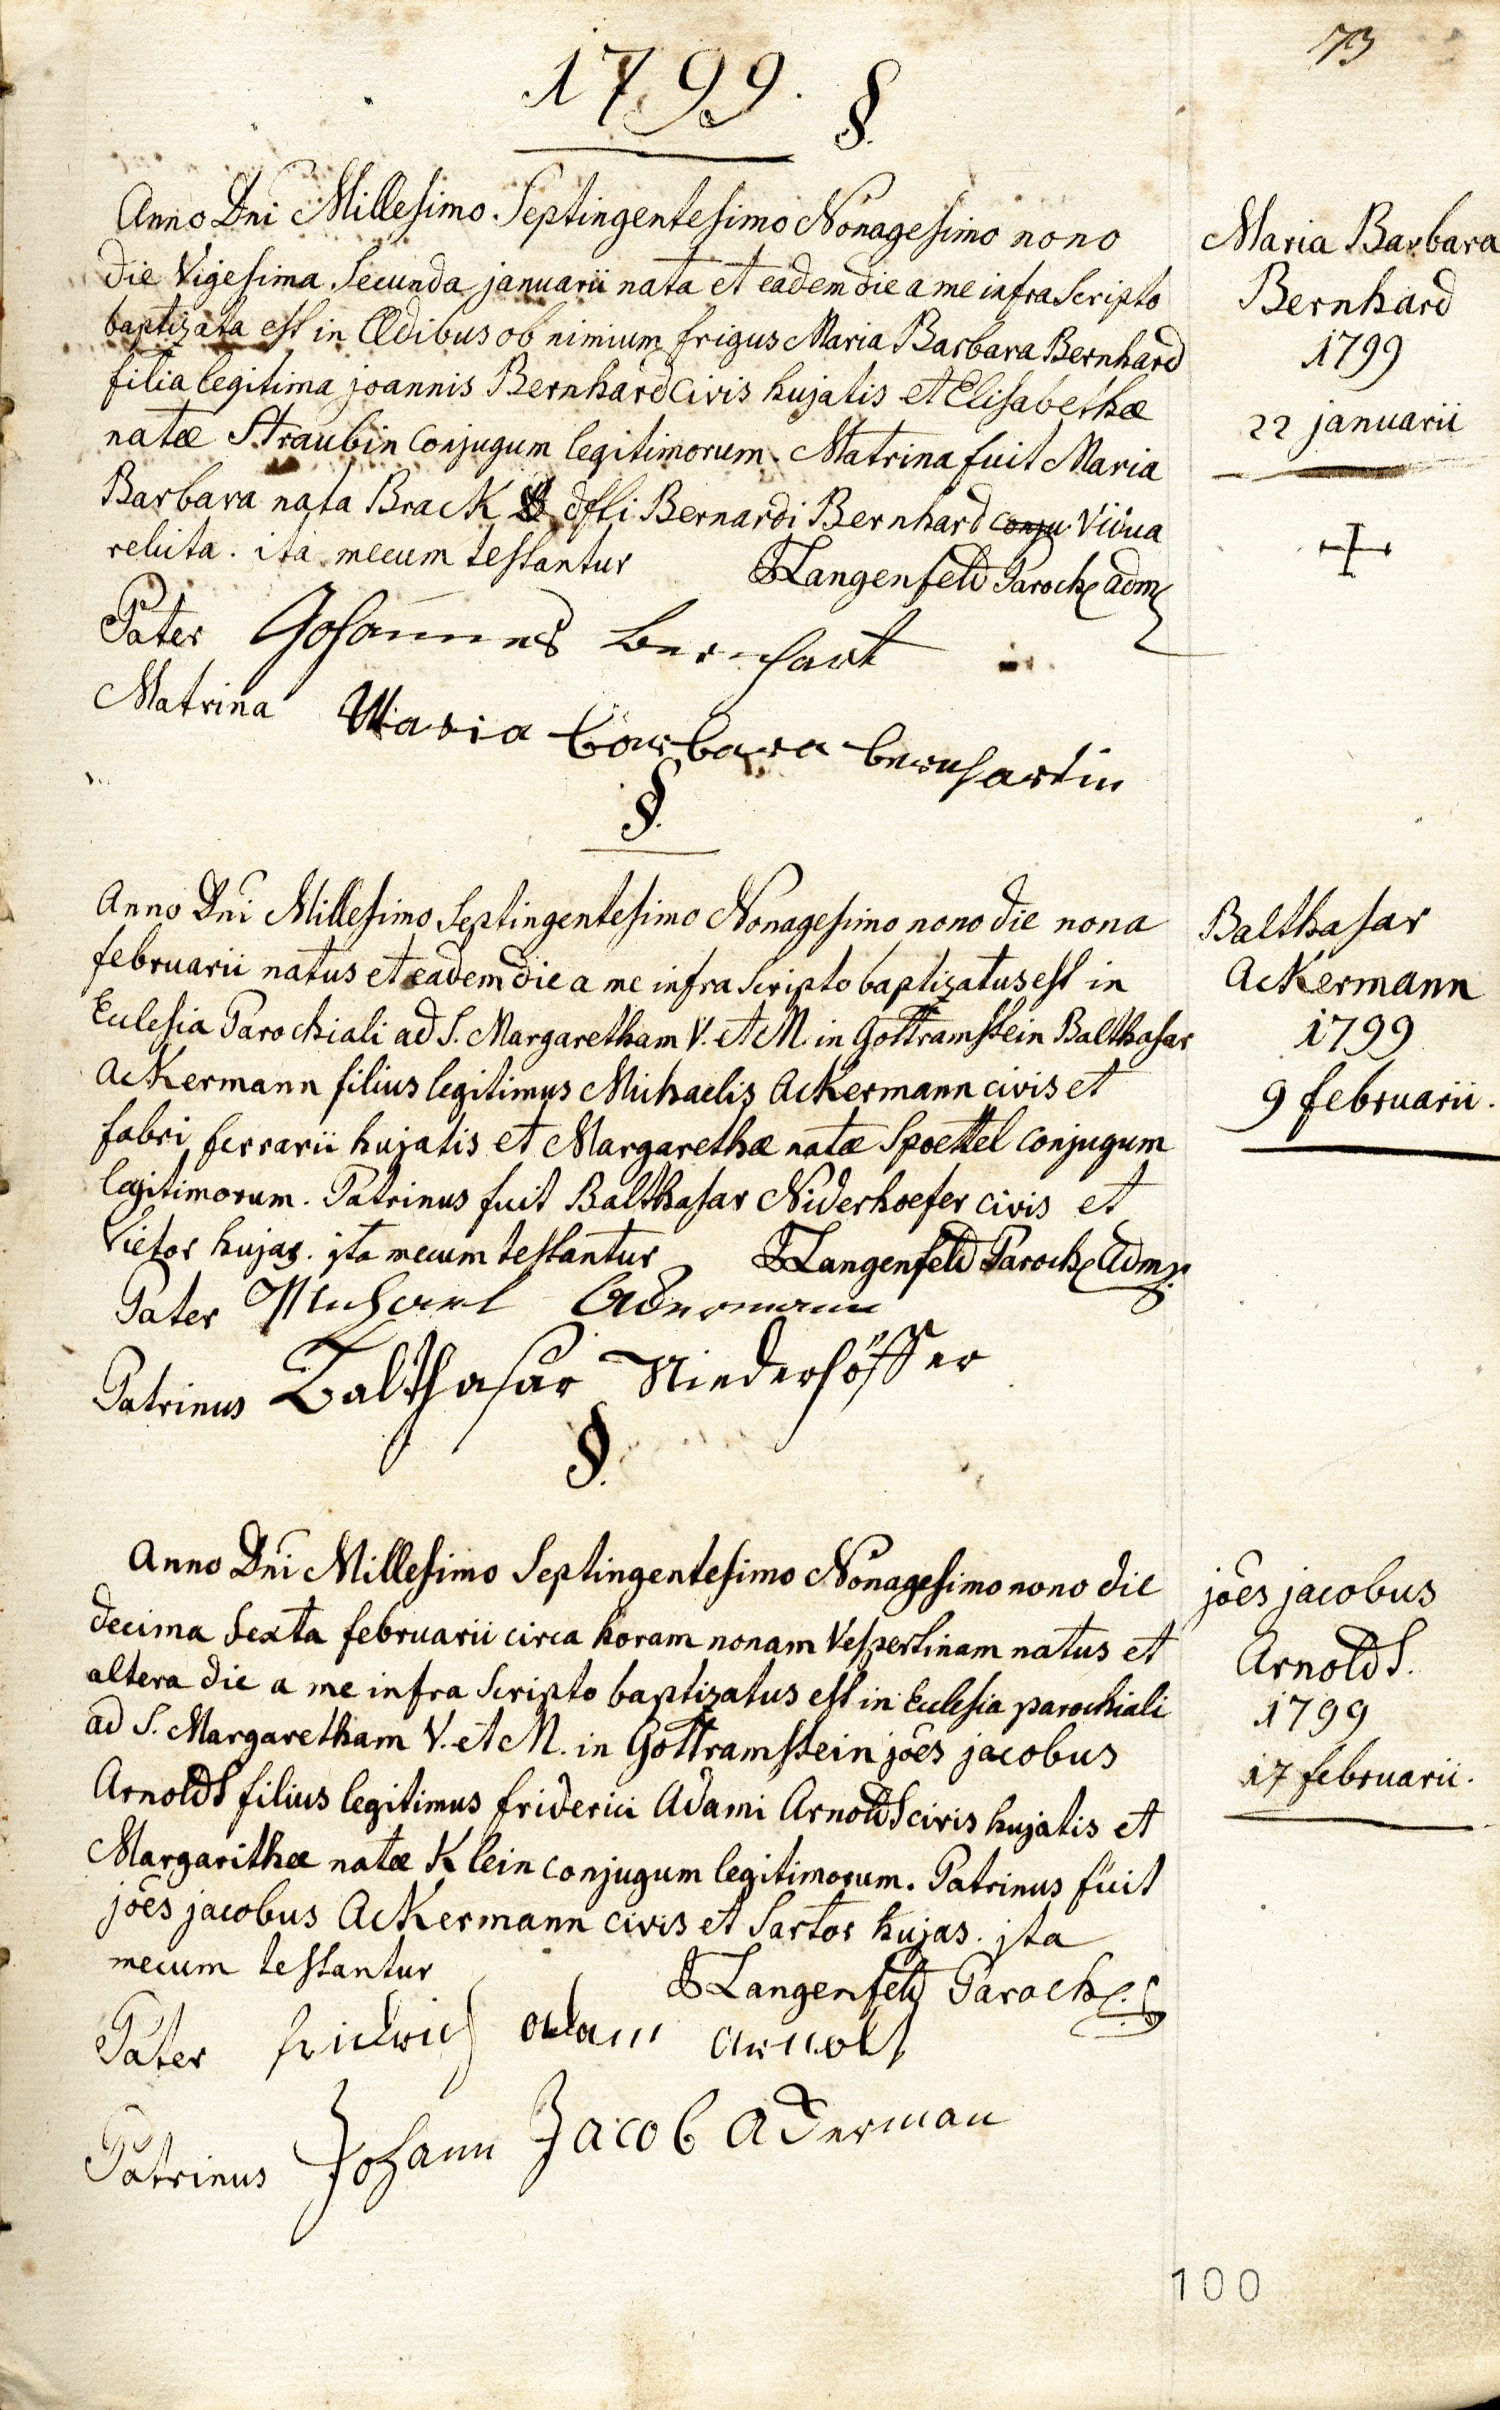 73
1799. §.
Anno Dni Millesimo Septingentesimo Nonagesimo nono
die Vigesima Secunda januarii nata et eadem die a me infra Scripto
baptizata est in Ædibus ob nimium frigus Maria Barbara Bernhard
filia legitima joannis Bernhard civis hujatis et Elisabethæ
natæ Straubin conjugum legitimorum. Matrina fuit Maria
Barbara nata Brack dfti Bernardi Bernhard conju Vidua
relicta. ita mecum testantur Langenfeld Paroch adm
Pater Johannes bernhart
Matrina Maria barbara bernhartin
Maria Barbara
Bernhard
1799
22 januarii
§.
Anno Dni Millesimo Septingentesimo Nonagesimo nono die nona
februarii natus et eadem die a me infra Scripto baptizatus est in
Ecclesia Parochiali ad S. Margaretham V. et M. in Gottramstein Balthasar
Ackermann filius legitimus Michaelis Ackermann civis et
fabri ferrarii hujatis et Margarethæ natæ Spoettel conjugum
legitimorum. Patrinus fuit Balthasar Niderhoefer civis et
Vietor hujas. jta mecum testantur Langenfeld Paroch Adm
Pater Michael Ackermann
Patrinus Balthasar Niederhöffer
Balthasar
Ackermann
1799
9 februarii.
§.
Anno Dni Millesimo Septingentesimo Nonagesimo nono die
decima Sexta februarii circa horam nonam Vespertinam natus et
altera die a me infra Scripto baptizatus est in Ecclesia parochiali
ad S. Margaretham V. et M. in Gottramstein jōes jacobus
Arnolds filius legitimus friderici Adami Arnolds civis hujatis et
Margarithæ natæ Klein conjugum legitimorum. Patrinus fuit
jōes jacobus Ackermann civis et Sartor hujas. jta
mecum testantur Langenfeld Paroch
Pater fridrich adam arnolt
Patrinus Johann Jacob Ackerman
jōes jacobus
Arnolds.
1799
17 februarii.
100